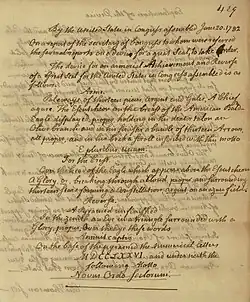 By the United States in Congress assembled June 20. 1782
On a report of the secretary of Congress to whom were referred
the several reports on a device for a great seal, to take Order.
The device for an armorial Atchievement and Reverse
of a great seal for the United States in Congress assembled is as
follows.
Arms.
Paleways of thirteen pieces Argent and Gules: A Chief,
Azure. The Escutcheon on the breast of the American bald
Eagle displayed, proper, holding in his dexter talon an
Olive branch, and in his sinister a bundle of thirteen Arrows,
all proper, and in his beak a scroll, inscribed with this motto
E pluribus unum.
For the Crest
Over the head of the Eagle which appears above the Escutcheon,
A Glory, Or, breaking through a cloud, proper, and surrounding
thirteen stars forming a Constellation, Argent, on an azure field.
Reverse.
A Pyramid unfinished.
In the Zenith an Eye in a triangle surrounded with a
glory, proper. Over the Eye these words
Annuit Cœptis.
On the base of the pyramid the numerical letters
MDCCLXXVI. and underneath the
following motto.
Novus Ordo Seclorum.